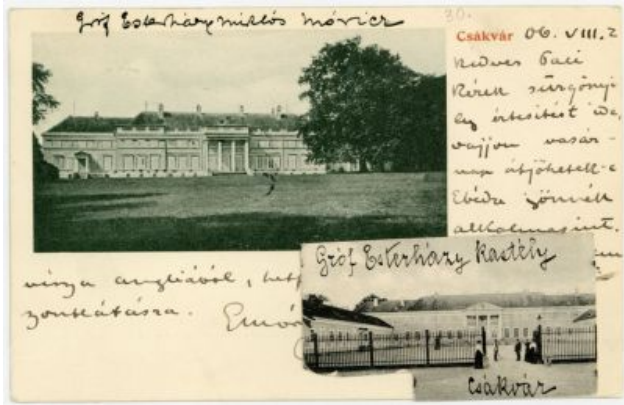 Gróf Esterházy Miklós Móricz
30.
Csákvár 06. VIII. 2
Kedves Paci
Kérek sürgönyi
leg értesitést ide,
vajjon vasár-
nap átjöhetek-e
Ebédre jönnék
alkalmasint.
vissza angliából,
zontlátásra.
Gróf Esterházy Kastély
Csákvár